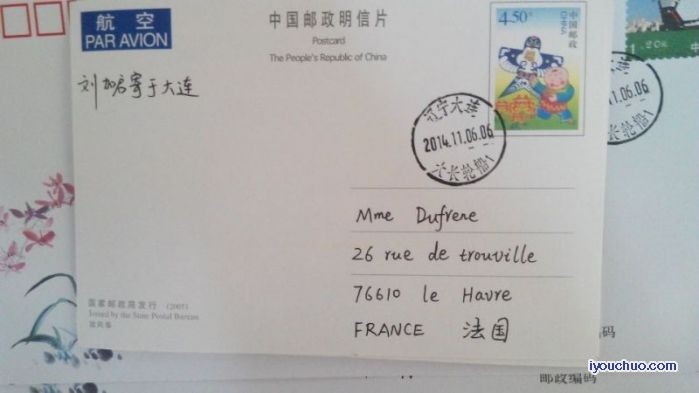 航 空
PAR AVION
中国邮政明信片
Postcard
The People's Republic of China
4.50元
中国邮政
CHINA
20
刘加启寄于大连
辽宁大连
2014.11.06.06
大长轮船1
06.06
轮船1
Mme Dufrene
26 rue de trouville
76610 le Havre
FRANCE 法国
国家邮政局发行 (2005)
Issued by the State Postal Bureau
放风筝
编码
邮政编码
iyouchuo.com